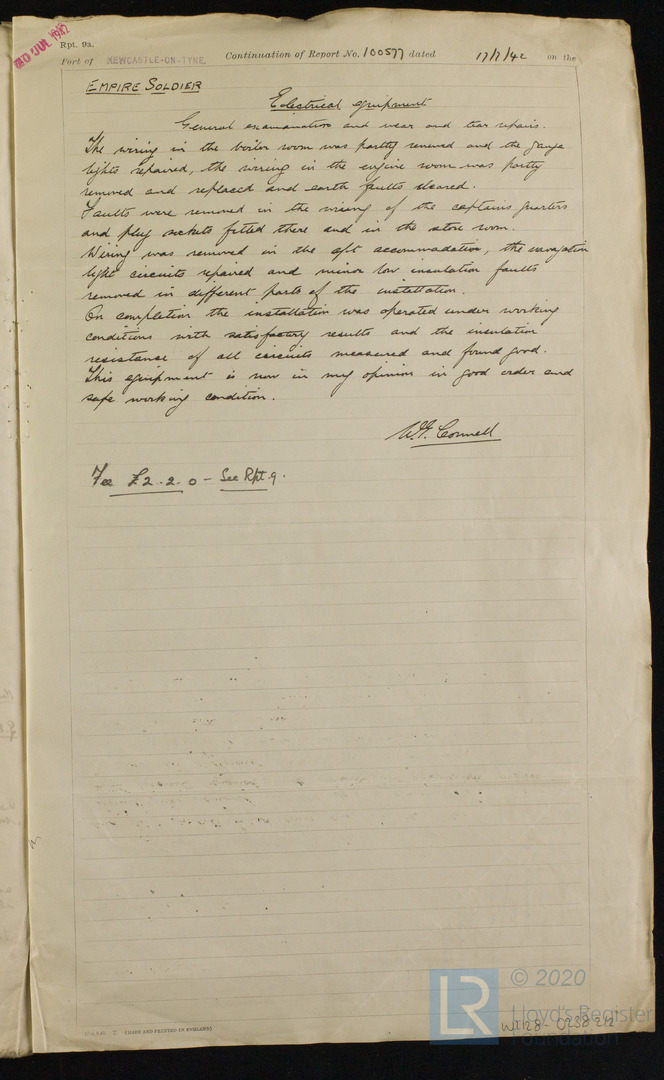 Rpt. 9a.
Port of NEWCASTLE-ON-TYNE. Continuation of Report No. 100577 dated 17/7/42 on the
EMPIRE SOLDIER
Electrical equipment
General examination and wear and tear repairs.
The wiring in the boiler room was partly renewed and the gauge
lights repaired, the wiring in the engine room was partly
removed and replaced and earth faults cleared.
Faults were removed in the wiring of the captains quarters
and plug sockets fitted there and in the store room.
Wiring was renewed in the aft accommodation, the navigation
light circuits repaired and minor low insulation faults
removed in different parts of the installation.
On completion the installation was operated under working
conditions with satisfactory results and the insulation
resistance of all circuits measured and found good.
This equipment is now in my opinion in good order and
safe working condition.
Connell
Fee £2.2.0 - See Rpt. 9.
(MADE AND PRINTED IN ENGLAND)
LR
© 2020
Lloyd's Register
Foundation